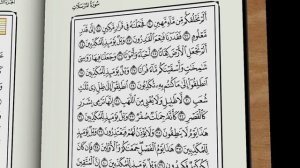 سُورَةُ المُرْسَلَاتِ
أَلَمْ نَخْلُقكُّم مِّن مَّآءٍ مَّهِينٍ ۝ فَجَعَلْنَٰهُ فِى قَرَارٍ مَّكِينٍ ۝ إِلَىٰ قَدَرٍ
مَّعْلُومٍ ۝ فَقَدَرْنَا فَنِعْمَ ٱلْقَٰدِرُونَ ۝ وَيْلٌ يَوْمَئِذٍ لِّلْمُكَذِّبِينَ ۝
أَلَمْ نَجْعَلِ ٱلْأَرْضَ كِفَاتًا ۝ أَحْيَآءً وَأَمْوَٰتًا ۝ وَجَعَلْنَا فِيهَا
رَوَٰسِىَ شَٰمِخَٰتٍ وَأَسْقَيْنَٰكُم مَّآءً فُرَاتًا ۝ وَيْلٌ يَوْمَئِذٍ لِّلْمُكَذِّبِينَ ۝
ٱنطَلِقُوٓا۟ إِلَىٰ مَا كُنتُم بِهِۦ تُكَذِّبُونَ ۝ ٱنطَلِقُوٓا۟ إِلَىٰ ظِلٍّ ذِى ثَلَٰثِ
شُعَبٍ ۝ لَّا ظَلِيلٍ وَلَا يُغْنِى مِنَ ٱللَّهَبِ ۝ إِنَّهَا تَرْمِى بِشَرَرٍ
كَٱلْقَصْرِ ۝ كَأَنَّهُۥ جِمَٰلَتٌ صُفْرٌ ۝ وَيْلٌ يَوْمَئِذٍ لِّلْمُكَذِّبِينَ ۝
هَٰذَا يَوْمُ لَا يَنطِقُونَ ۝ وَلَا يُؤْذَنُ لَهُمْ فَيَعْتَذِرُونَ ۝ وَيْلٌ يَوْمَئِذٍ
لِّلْمُكَذِّبِينَ ۝ هَٰذَا يَوْمُ ٱلْفَصْلِ جَمَعْنَٰكُمْ وَٱلْأَوَّلِينَ ۝ فَإِن
كَانَ لَكُمْ كَيْدٌ فَكِيدُونِ ۝ وَيْلٌ يَوْمَئِذٍ لِّلْمُكَذِّبِينَ ۝ إِنَّ ٱلْمُتَّقِينَ